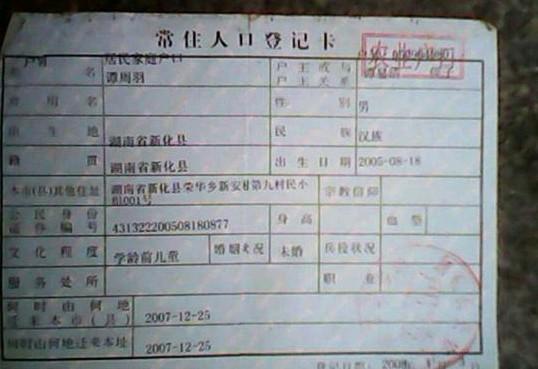 常住人口登记卡
户别 居民家庭户口 户主或与
名 谭周羽 户主关系
性别 男
出生地 湖南省新化县 民族 汉族
籍贯 湖南省新化县 出生日期 2005-08-18
本市(县)其他住址 湖南省新化县荣华乡新安村第九村民小 宗教信仰
组001号
公民身份 身高 血型
证件编号 431322200508180877
文化程度 学龄前儿童 婚姻状况 未婚 兵役状况
服务处所 职业
何时由何地
迁来本市(县) 2007-12-25
何时由何地迁来本址 2007-12-25
登记日期: 2008